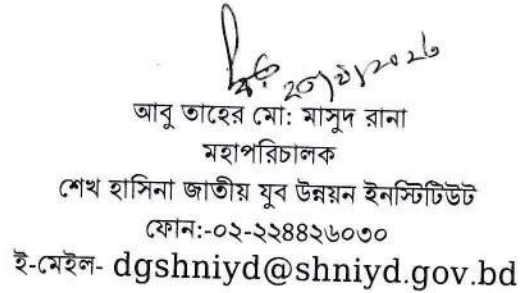 আবু তাহের মো: মাসুদ রানা
মহাপরিচালক
শেখ হাসিনা জাতীয় যুব উন্নয়ন ইনস্টিটিউট
ফোন:-০২-২২৪৪২৬০৩০
ই-মেইল- dgshniyd@shniyd.gov.bd